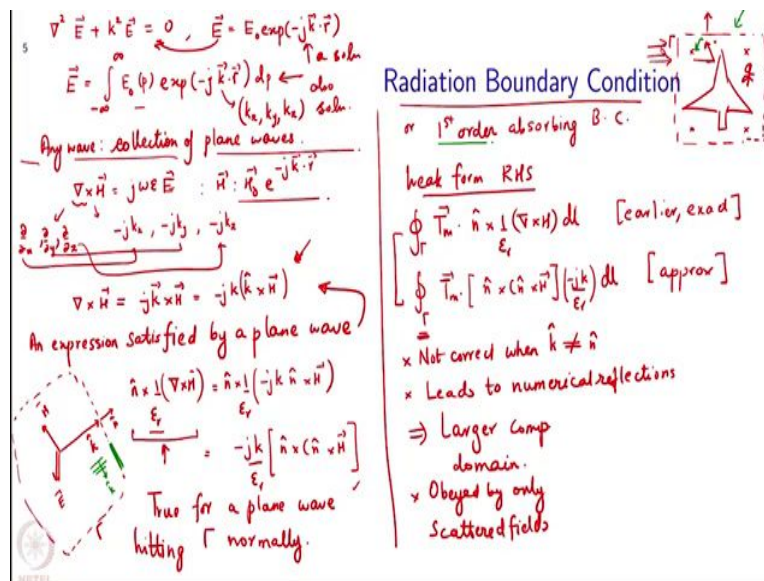 5
∇² E⃗ + k² E⃗ = 0 , E⃗ = E₀ exp(-j k⃗·r⃗)
↑ a soln
E⃗ = ∫_{-∞}^{∞} E₀(p) exp(-j k⃗·r⃗) dp ← also soln.
Any wave: collection of plane waves.
∇×H⃗ = jωε E⃗ : H⃗ : H⃗₀ e^{-j k⃗·r⃗}
∂/∂x , ∂/∂y , ∂/∂z -jkx , -jky , -jkz
∇×H⃗ = -j k⃗×H⃗ = -jk(k̂×H⃗)
An expression satisfied by a plane wave
n̂ × 1/εr (∇×H⃗) = n̂ × 1/εr (-jk n̂ ×H⃗)
= -jk/εr [n̂ × (n̂ ×H⃗]
H⃗
k̂
n̂
E⃗
Γ
True for a plane wave
hitting Γ normally.
Radiation Boundary Condition
or 1st order absorbing B.C.
Weak form RHS
∮_Γ T⃗m · n̂ × 1/εr (∇×H) dl [earlier, exact]
∮_Γ T⃗m · [n̂ × (n̂ ×H⃗)] (-jk/εr) dl [approx]
× Not correct when k̂ ≠ n̂
× Leads to numerical reflections
⇒ Larger comp
domain.
× Obeyed by only
scattered fields
Γ
NPTEL